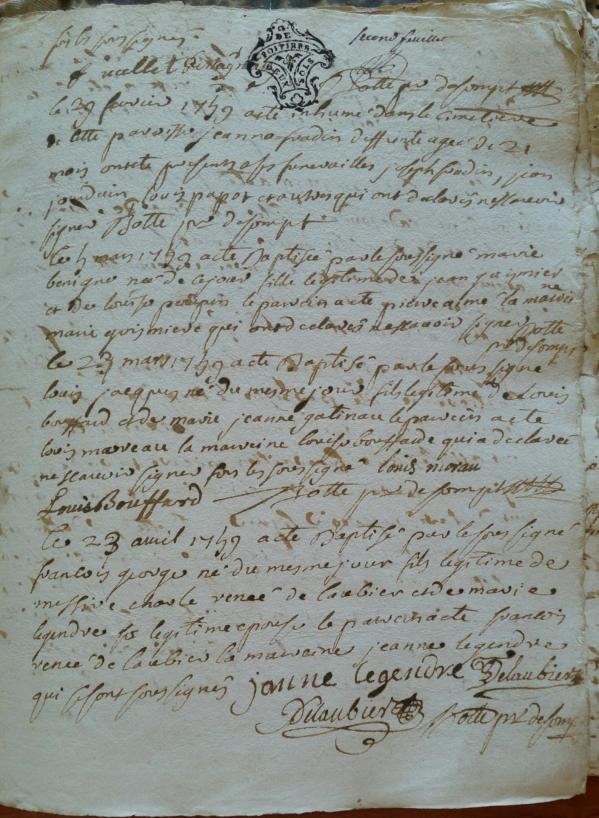 fors les soussignes
second feuillet
G. DE POITIERS DEUX SOLS
Botte pr de sompt
le 29 fevrier 1749 a eté inhumé dans le cimetiere
de cette paroisse jeanne fradin agee de 21
mois ont eté presents a ses funerailles joseph fradin, jean
jourdain louis papot et autres qui ont declarés ne scavoir
signer Botte pr de sompt
le 5 mars 1749 a eté Baptisée par le soussigné marie
benigne neé de ce jour fille legitime de jean
et de louise le parein a eté pierre la mareine
marie qui ont declarés ne scavoir signer Botte
pr de sompt
le 23 mars 1749 a eté Baptisé par le soussigné
louis jacques né du mesme jour fils legitime de Louis
bouffard et de marie jeanne gatineau le parein a eté
louis mareau la mareine louise bouffarde qui a declaree
ne scavoir signer fors les soussignés louis morau
Louis Bouffard Botte pr de sompt
le 23 avril 1749 a eté Baptisé par le soussigné
francois george né du mesme jour fils legitime de
messire charle reneé de laubier et de marie
legendre sa legitime epouse le parein a eté francois
reneé de laubier la mareine jeanne legendre
qui se sont soussignés janne legendre Delaubier
Delaubier Botte pr de sompt